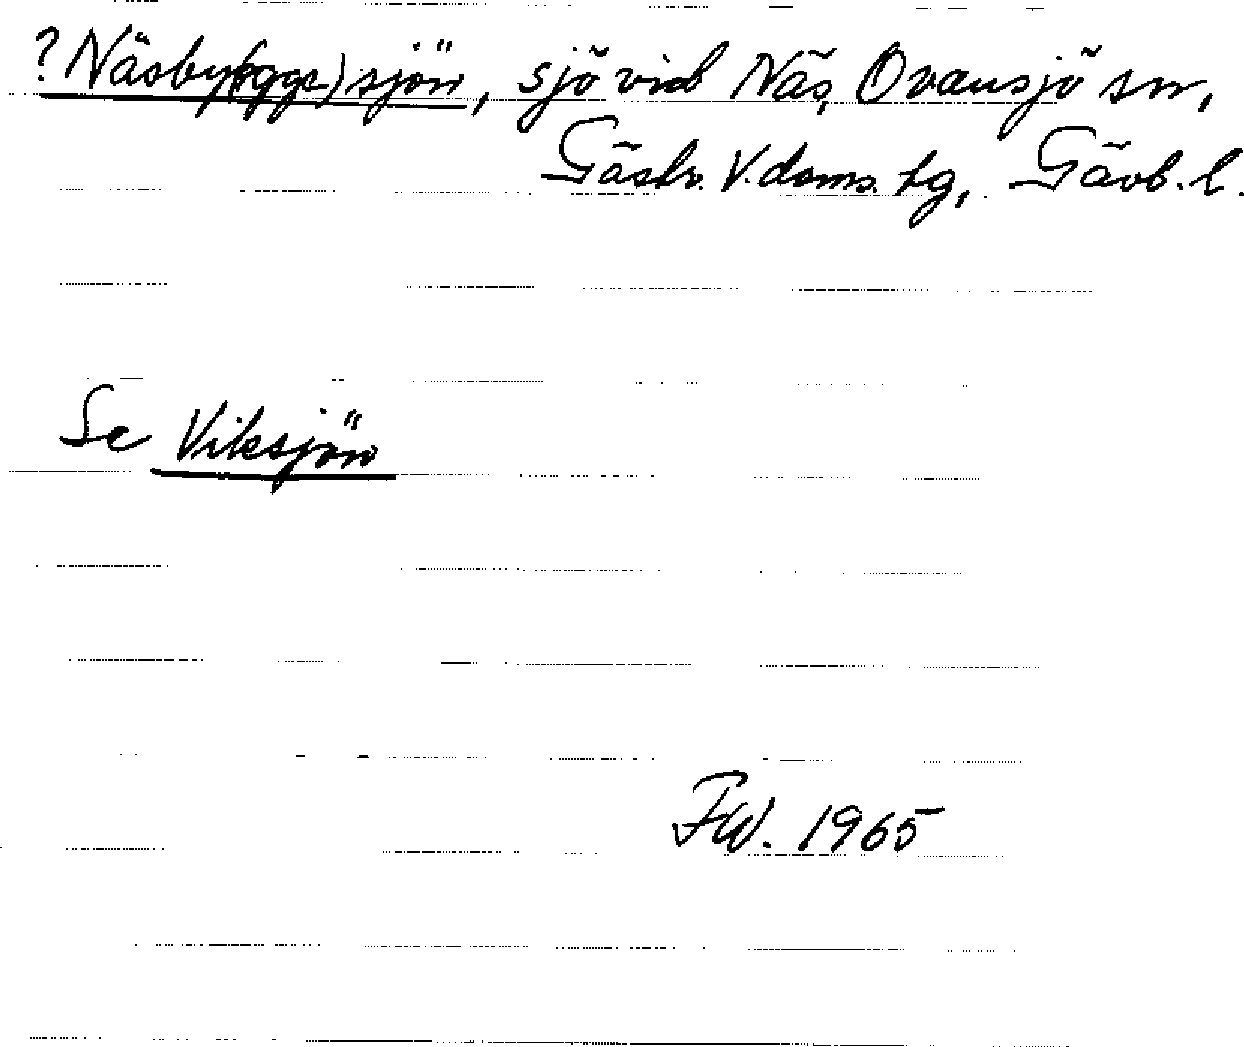 ?Näsby(gge)sjön, sjö vid Näs, Ovansjö sn,
Gästr. V. doms. tg, Gävb. l.
Se Viksjön
FW. 1965